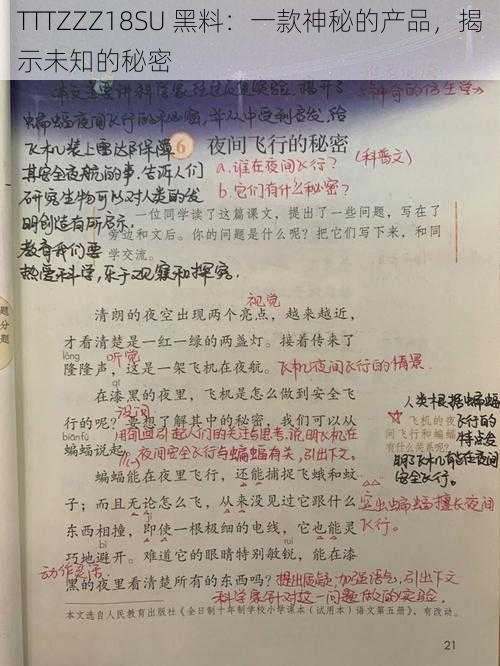 TTTZZZ18SU 黑料：一款神秘的产品，揭
示未知的秘密
蝙蝠夜间飞行的秘密，并从中受到启发，给
飞机装上雷达保障
6 夜间飞行的秘密
其安全夜航的事，告诉人们
a.谁在夜间飞行？
(科普文)
研究生物可以对人类的发
b.它们有什么秘密？
明创造有所启示，
一位同学读了这篇课文，提出了一些问题，写在了
教育我们要
旁边和文后。你的问题是什么呢？把它们写下来，和同
学交流。
热爱科学，乐于观察和探究。
视觉
清朗的夜空出现两个亮点，越来越近，
才看清楚是一红一绿的两盏灯。接着传来了
lóng
听觉
隆隆声，这是一架飞机在夜航。
飞机夜间飞行的情景
qī
在漆黑的夜里，飞机是怎么做到安全飞
设问
行的呢？要想了解其中的秘密，我们可以从
biān fú
蝙蝠说起。
用问句引起人们的关注与思考，说明飞机在
夜间安全飞行与蝙蝠有关，引出下文。
人类根据蝙蝠
飞行的
特点给
飞机的夜
间飞行和蝙蝠
有什么关系呢？
蝙蝠能在夜里飞行，还能捕捉飞蛾和蚊
安全飞行。
子；而且无论怎么飞，从来没见过它跟什么
突出蝙蝠擅长夜间
东西相撞，即使一根极细的电线，它也能灵
飞行。
巧地避开。难道它的眼睛特别敏锐，能在漆
动作灵活
黑的夜里看清楚所有的东西吗？
提出质疑，加强语气，引出下文
科学家针对这一问题做的实验
本文选自人民教育出版社《全日制十年制学校小学课本（试用本）语文第五册》，有改动。
21